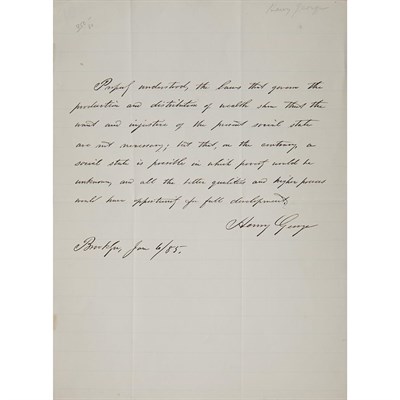 Henry George
Properly understood, the laws that govern the
production and distribution of wealth show that the
want and injustice of the present social state
are not necessary; but that, on the contrary, a
social state is possible in which poverty would be
unknown, and all the better qualities and higher powers
would have opportunity for full development.
Henry George
Brooklyn, Jan 6/85.